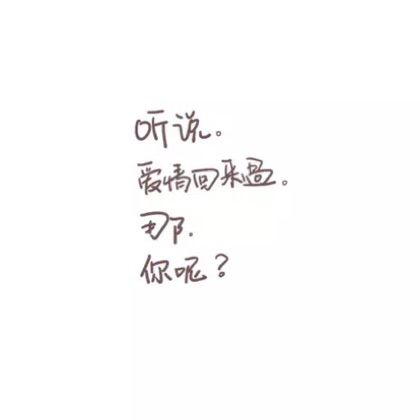 听说。
爱情回来過。
那.
你呢？